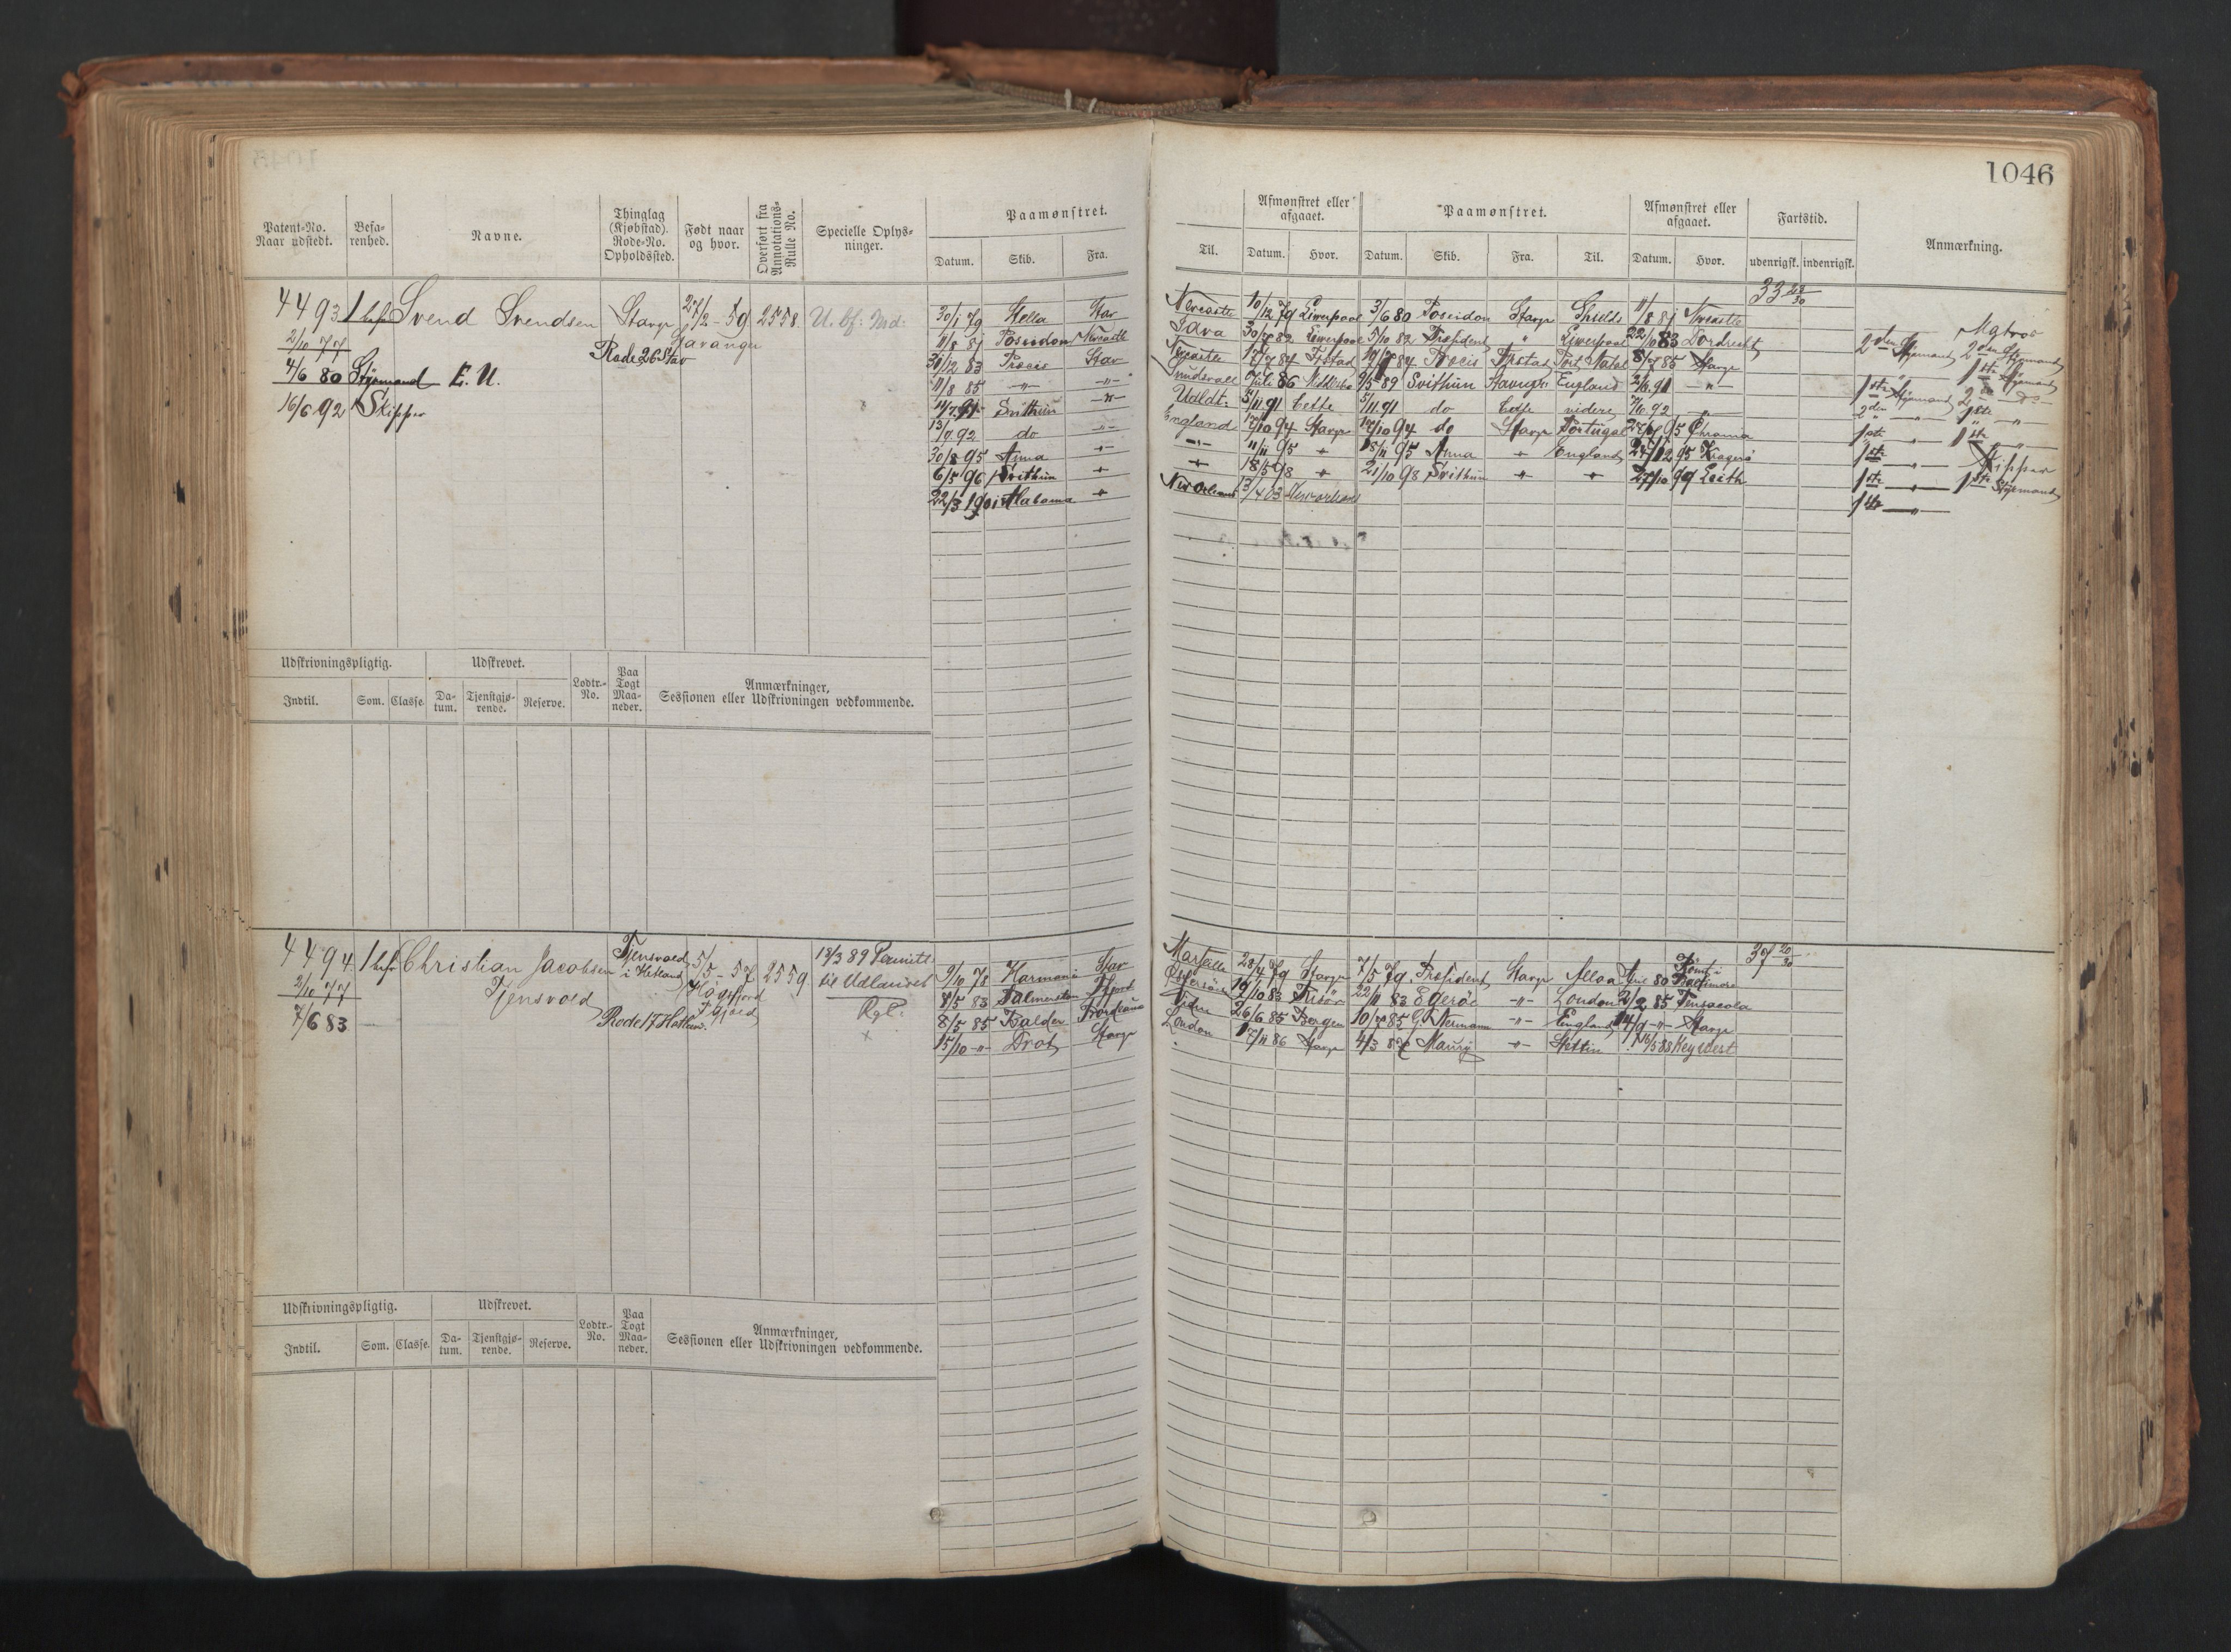 1046
Patent-No. Naar udstedt.
Befa-renhed.
Navne.
Thinglag (Kjøbstad). Rode-No. Opholdssted.
Født naar og hvor.
Overført fra Annotations-Rulle No.
Specielle Oplys-ninger.
Paamønstret.
Datum. Skib. Fra. Til.
Afmønstret eller afgaaet.
Datum. Hvor.
Paamønstret.
Datum. Skib. Fra. Til.
Afmønstret eller afgaaet.
Datum. Hvor.
Fartstid.
udenrigsk. indenrigsk.
Anmærkning.
4493 1 bef Svend Svendsen Stavgr 27/2-59 2558 U. bf:
2/10 77 Stavanger
Rode 26 Stav
4/6 80 Styrmand E. U.
16/6 92 Skipper
33 28/30
30/1 79 Stella Stav Newcastle 10/12 79 Liverpool 3/6 80 Poseidon Stavgr Shields 11/8 81 Newcastle Matros
11/8 81 Poseidon Newcastle Java 30/ 82 Liverpool 5/10 82 President " Liverpool 22/10 83 Dordrecht 2den Styrmand 2den Styrmand
31/12 83 Procis Stav Newcastle 17/7 84 Frstad 19/7 84 Procis Frstad Port Natal 8/7 85 Stavgr " 1ste Styrmand
11/8 85 -"- -"- Sundsvall Juli 86 9/5 89 Svithun Stavngr England 2/ 91 -"- 1ste Styrmand 2den Do
4/7 91 Svithun -"- Udldt: 5/11 91 Cette 5/11 91 do Cette videre 7/6 92 " 2den " 1ste "
13/ 92 do -"- England 17/10 94 Stavgr 17/10 94 do Stavgr Portugal 95 Chrania 1ste " 1ste "
30/8 95 Anna -"- -"- 11/11 95 " 18/11 95 Anna " England 27/12 95 Kragerø 1ste " Skipper
6/5 96 Svithun " " 18/5 98 " 21/10 98 Svithun " " 27/10 99 Leith 1ste " 1ste Styrmand
22/3 1901 Alabama " New Orleans 13/4 03 New orleans 1ste "
Udskrivningspligtig. Udskrevet. Lodtr.-No. Paa Togt Maa-neder. Anmærkninger, Sessionen eller Udskrivningen vedkommende.
Indtil. Som. Classe. Da-tum. Tjenstgjø-rende. Reserve.
4494 1 bef Christian Jacobsen Tjensvold i Hetland 5/5-57 2559 13/3 89 Permitt
2/10 77 Tjensvold Høgsfjord til Udlandet
7/6 83 Rode 17 Hetlan. Rgl:
37 20/30
9/10 78 Harmoni Stav Marseille 28/4 79 Stavgr 7/5 79 President Stavgr Alloa 80 Rømt i Baltimore
8/5 83 Palmerston Østersøen 19/10 83 Risør 22/11 83 Egerøe -"- London 2/2 85 Pensacola
8/5 85 Balder Bordeaux Viken 26/6 85 Bergen 10/7 85 G. Neumann -"- England 14/9 -"- Stavgr
15/10 -"- Drot Stavgr London 17/11 86 Stavgr 4/3 87 Maury -"- Stettin 16/5 88 Key West
Udskrivningspligtig. Udskrevet. Lodtr.-No. Paa Togt Maa-neder. Anmærkninger, Sessionen eller Udskrivningen vedkommende.
Indtil. Som. Classe. Da-tum. Tjenstgjø-rende. Reserve.